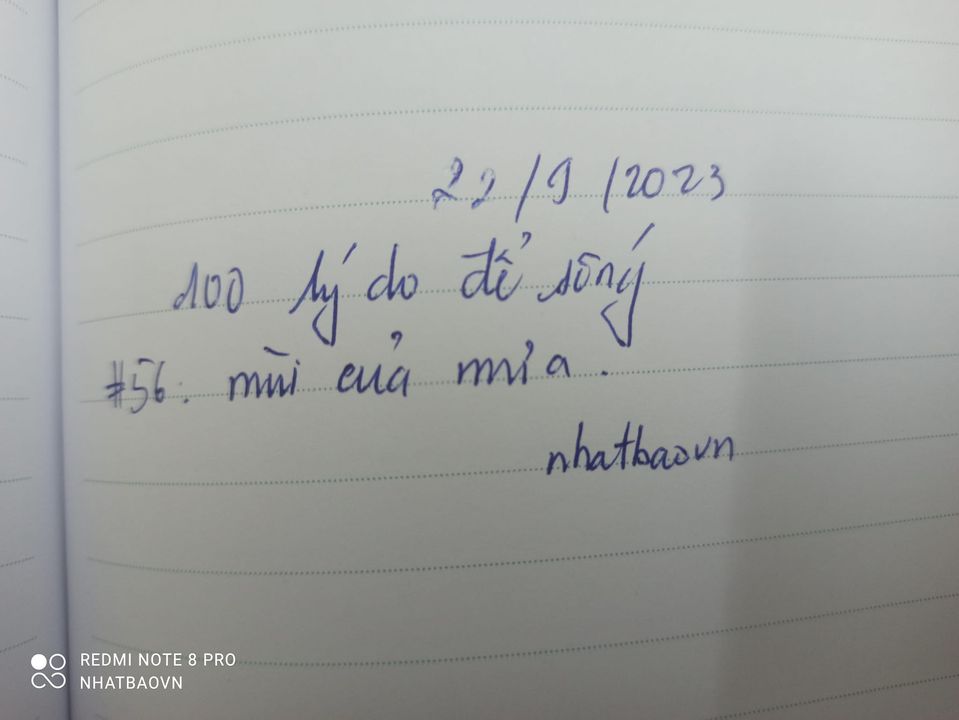 22/9/2023
100 lý do để sống
#56: mùi của mưa.
nhatbaovn
REDMI NOTE 8 PRO
NHATBAOVN